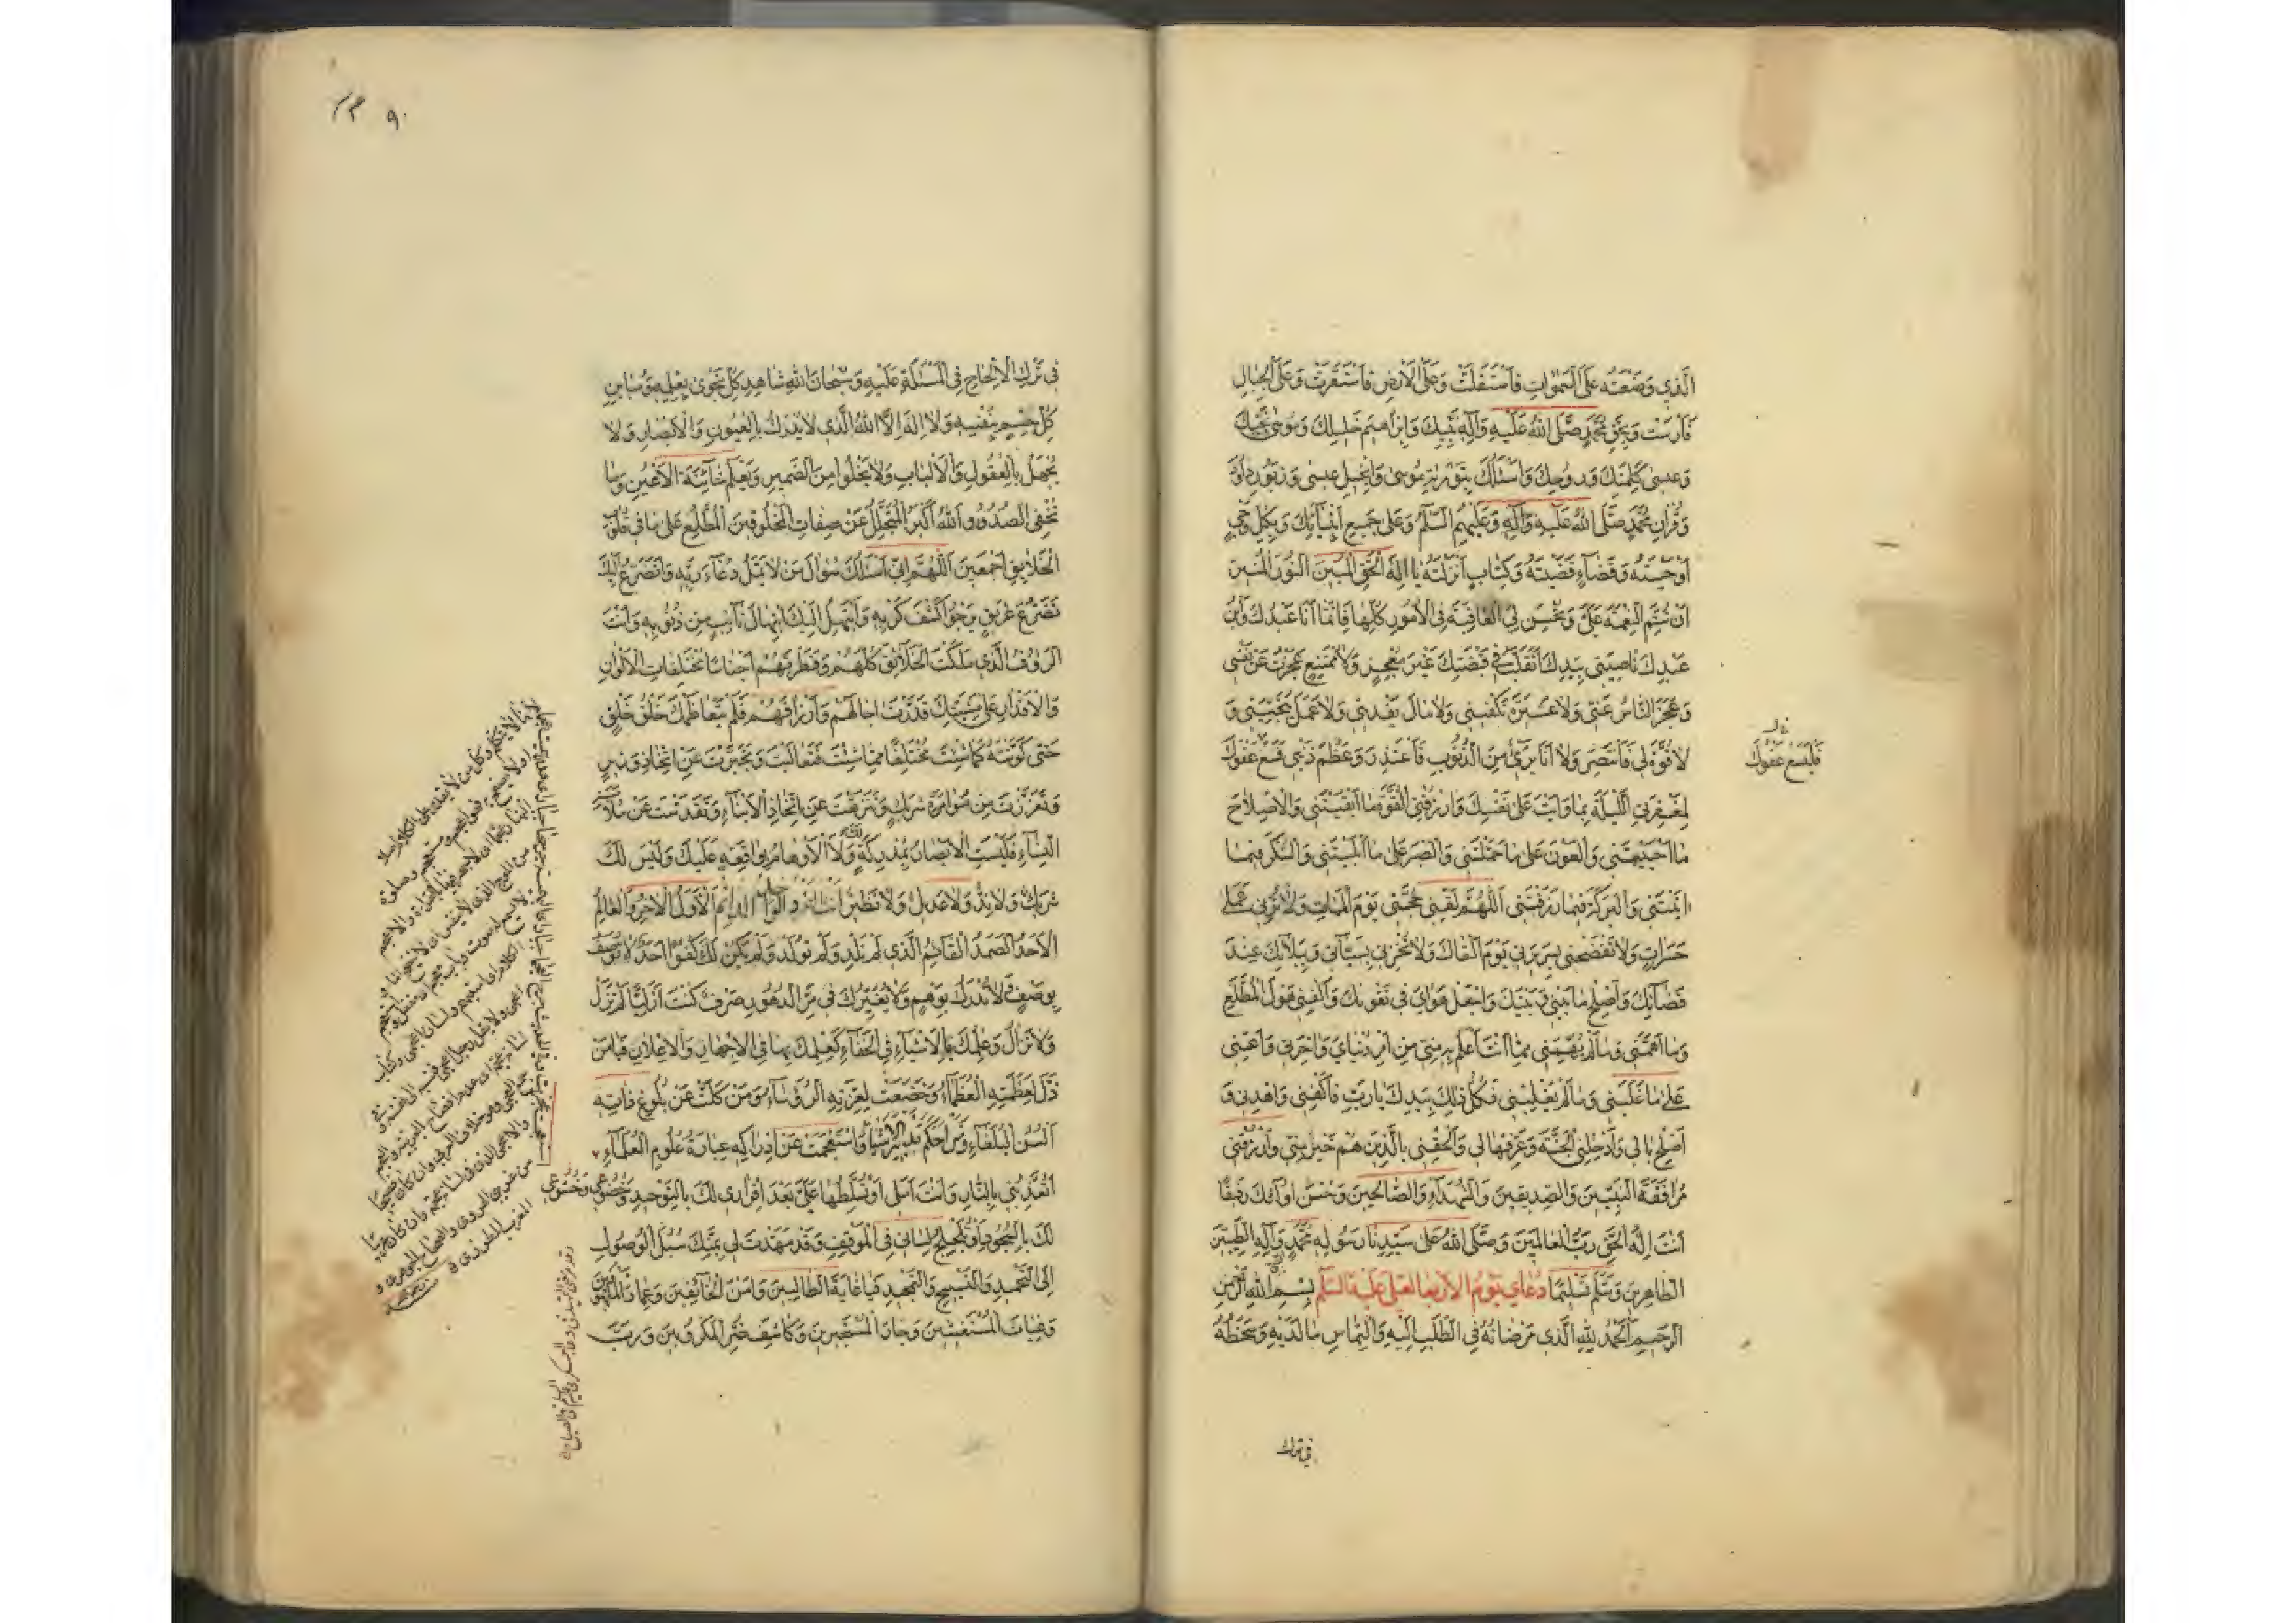 الَّذي وَضَعْتَهُ عَلَى السَّمٰواتِ فَاسْتَقَلَّتْ وَعَلَى الْاَرْضِ فَاسْتَقَرَّتْ وَعَلَى الْجِبالِ
فَاَرْسَتْ وَبِحَقِّ مُحَمَّدٍ صَلَّى اللهُ عَلَيْهِ وَآلِهِ نَبِيِّكَ وَاِبْراهيمَ خَليلِكَ وَمُوسٰى نَجِيِّكَ
وَعيسٰى كَلِمَتِكَ وَرُوحِكَ وَاَسْئَلُكَ بِتَوْريٰةِ مُوسٰى وَاِنْجيلِ عيسٰى وَزَبُورِ داوُدَ
وَقُرْانِ مُحَمَّدٍ صَلَّى اللهُ عَلَيْهِ وَآلِهِ وَعَلَيْهِمُ السَّلٰمُ وَعَلٰى جَميعِ اَنْبِيآئِكَ وَبِكُلِّ وَحْيٍ
اَوْحَيْتَهُ وَقَضآءٍ قَضَيْتَهُ وَكِتابٍ اَنْزَلْتَهُ يا اِلٰهَ الْحَقِّ الْمُبينَ النُّورَ الْمُنيرَ
اَنْ تُتِمَّ النِّعْمَةَ عَلَيَّ وَتُحْسِنَ لِيَ الْعاقِبَةَ فِى الْاُمُورِ كُلِّها فَاِنَّما اَنَا عَبْدُكَ وَابْنُ
عَبْدِكَ ناصِيَتي بِيَدِكَ اَتَقَلَّبُ في قَبْضَتِكَ غَيْرَ مُعْجِزٍ وَلا مُمْتَنِعٍ عَجَزْتُ عَنْ نَفْسي
وَعَجَزَ النّاسُ عَنّي وَلا عَشيرَةَ تَكْفيني وَلا مالَ يَفْديني وَلا عَمَلَ يُنْجيني وَ
لا قُوَّةَ لي فَاَنْتَصِرَ وَلا اَنَا بَريءٌ مِنَ الذُّنُوبِ فَاَعْتَذِرَ وَعَظُمَ ذَنْبي فَسَعْ عَفْوَكَ
فَلْيَسَعْ عَفْوُكَ
لِمَغْفِرَتي اللَّيْلَةَ بِما وَاَيْتَ عَلٰى نَفْسِكَ وَارْزُقْنِى الْقُوَّةَ ما اَبْقَيْتَني وَالْاِصْلاحَ
ما اَحْيَيْتَني وَالْعَوْنَ عَلٰى ما حَمَّلْتَني وَالصَّبْرَ عَلٰى ما اَبْلَيْتَني وَالشُّكْرَ فيما
اٰتَيْتَني وَالْبَرَكَةَ فيما رَزَقْتَني اَللّٰهُمَّ لَقِّني حُجَّتي يَوْمَ الْمَماتِ وَلا تُرِني عَمَلي
حَسَراتٍ وَلا تَفْضَحْني بِسَريرَتي يَوْمَ اَلْقاكَ وَلا تُخْزِني بِسَيِّئاتي وَبِبَلآئِكَ عِنْدَ
قَضآئِكَ وَاَصْلِحْ ما بَيْني وَبَيْنَكَ وَاجْعَلْ هَوايَ في تَقْوٰيكَ وَاكْفِني هَوْلَ الْمُطَّلَعِ
وَما اَهَمَّني وَما لَمْ يُهِمَّني مِمّا اَنْتَ اَعْلَمُ بِهِ مِنّي مِنْ اَمْرِ دُنْيايَ وَاٰخِرَتي وَاَعِنّي
عَلٰى ما غَلَبَني وَما لَمْ يَغْلِبْني فَكُلُّ ذٰلِكَ بِيَدِكَ يا رَبِّ فَاكْفِني وَاهْدِني وَ
اَصْلِحْ بالي وَاَدْخِلْنِى الْجَنَّةَ وَعَرِّفْها لي وَاَلْحِقْني بِالَّذينَ هُمْ خَيْرٌ مِنّي وَارْزُقْني
مُرافَقَةَ النَّبِيّينَ وَالصِّدّيقينَ وَالشُّهَدآءِ وَالصّالِحينَ وَحَسُنَ اُولٰئِكَ رَفيقًا
اَنْتَ اِلٰهُ الْحَقِّ رَبُّ الْعالَمينَ وَصَلَّى اللهُ عَلٰى سَيِّدِنا رَسُولِهِ مُحَمَّدٍ وَآلِهِ الطَّيِّبينَ
الطّاهِرينَ وَسَلَّمَ تَسْليمًا دُعاءُ يَوْمِ الْاَرْبِعاءِ لِعَلِيٍّ عَلَيْهِ السَّلٰمُ بِسْمِ اللهِ الرَّحْمٰنِ
الرَّحيمِ اَلْحَمْدُ لِلّٰهِ الَّذي مَرْضاتُهُ فِى الطَّلَبِ اِلَيْهِ وَالْتِماسِ ما لَدَيْهِ وَسَخَطُهُ
في ترك
٩٠
في تَرْكِ الْاِلْحاحِ فِى الْمَسْئَلَةِ عَلَيْهِ وَسُبْحانَ اللهِ شاهِدِ كُلِّ نَجْوٰى بِعِلْمِهِ وَمُبايِنِ
كُلِّ جِسْمٍ بِنَفْسِهِ وَلا اِلٰهَ اِلَّا اللهُ الَّذي لا يُدْرَكُ بِالْعُيُونِ وَالْاَبْصارِ وَلا
يُجْهَلُ بِالْعُقُولِ وَالْاَلْبابِ وَلا يَخْلُوا مِنَ الضَّميرِ وَيَعْلَمُ خآئِنَةَ الْاَعْيُنِ وَما
تُخْفِى الصُّدُورُ وَاللهُ اَكْبَرُ الْمُتَجَلِّلُ عَنْ صِفاتِ الْمَخْلُوقينَ الْمُطَّلِعُ عَلٰى ما في قُلُوبِ
الْخَلآئِقِ اَجْمَعينَ اَللّٰهُمَّ اِنّي اَسْئَلُكَ سُؤالَ مَنْ لا يَمَلُّ دُعآءَ رَبِّهِ وَاَتَضَرَّعُ اِلَيْكَ
تَضَرُّعَ غَريقٍ يَرْجُوا كَشْفَ كَرْبِهِ وَاَبْتَهِلُ اِلَيْكَ ابْتِهالَ تآئِبٍ مِنْ ذُنُوبِهِ وَاَنْتَ
الرَّؤُفُ الَّذي مَلَكْتَ الْخَلآئِقَ كُلَّهُمْ وَفَطَرْتَهُمْ اَجْناسًا مُخْتَلِفاتِ الْاَلْوانِ
وَالْاَقْدارِ عَلٰى مَشِيَّتِكَ قَدَّرْتَ اٰجالَهُمْ وَاَرْزاقَهُمْ فَلَمْ يَتَعاظَمْكَ خَلْقُ خَلْقٍ
حَتّٰى كَوَّنْتَهُ كَما شِئْتَ مُخْتَلِفًا مِمّا شِئْتَ فَتَعالَيْتَ وَتَجَبَّرْتَ عَنِ اتِّخاذِ وَزيرٍ
وَتَعَزَّزْتَ مِنْ مُؤامَرَةِ شَريكٍ وَتَنَزَّهْتَ عَنِ اتِّخاذِ الْاَبْنآءِ وَتَقَدَّسْتَ عَنْ مُلامَسَةِ
النِّسآءِ فَلَيْسَتِ الْاَبْصارُ بِمُدْرِكَةٍ لَكَ وَلَا الْاَوْهامُ بِواقِعَةٍ عَلَيْكَ وَلَيْسَ لَكَ
شَريكٌ وَلا نِدٌّ وَلا عَديلٌ وَلا نَظيرٌ اَنْتَ الْفَرْدُ الْواحِدُ الدّآئِمُ الْاَوَّلُ الْاٰخِرُ وَالْعالِمُ
الْاَحَدُ الصَّمَدُ الْقآئِمُ الَّذي لَمْ يَلِدْ وَلَمْ يُولَدْ وَلَمْ يَكُنْ لَكَ كُفُوًا اَحَدٌ لا تُوصَفُ
بِوَصْفٍ وَلا تُدْرَكُ بِوَهْمٍ وَلا يُغَيِّرُكَ في مَرِّ الدُّهُورِ صَرْفٌ كُنْتَ اَزَلِيًّا لَمْ تَزَلْ
وَلا تَزالُ وَعِلْمُكَ بِالْاَشْيآءِ فِى الْخَفآءِ كَعِلْمِكَ بِها فِى الْاِجْهارِ وَالْاِعْلانِ فَيا مَنْ
ذَلَّ لِعَظَمَتِهِ الْعُظَمآءُ وَخَضَعَتْ لِعِزَّتِهِ الرُّؤَسآءُ وَمَنْ كَلَّتْ عَنْ بُلُوغِ ذاتِهِ
اَلْسُنُ الْبُلَغآءِ وَمَنْ اَحْكَمَ تَدْبيرَ الْاَشْيآءِ وَاسْتَعْجَمَتْ عَنْ اِدْراكِهِ عِبارَةُ عُلُومِ الْعُلَمآءِ
اَتُعَذِّبُني بِالنّارِ وَاَنْتَ اَمَلي اَوْ تُسَلِّطُها عَلَيَّ بَعْدَ اِقْراري لَكَ بِالتَّوْحيدِ وَخُضُوعي وَخُشُوعي
لَكَ بِالسُّجُودِ اَوْ تُلَجْلِجُ لِساني فِى الْمَوْقِفِ وَقَدْ مَهَّدْتَ لي بِمَنِّكَ سُبُلَ الْوُصُولِ
اِلَى التَّحْميدِ وَالتَّسْبيحِ وَالتَّمْجيدِ فَيا غايَةَ الطّالِبينَ وَاَمْنَ الْخآئِفينَ وَعِمادَ الْمَلْهُوفينَ
وَغِياثَ الْمُسْتَغيثينَ وَجارَ الْمُسْتَجيرينَ وَكاشِفَ ضُرِّ الْمَكْرُوبينَ وَرَبَّ